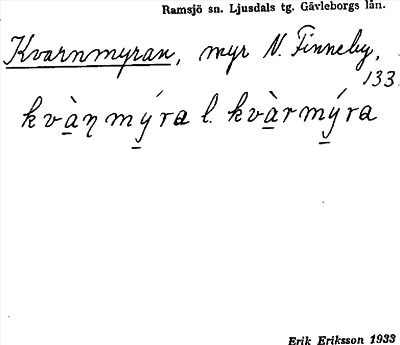 Ramsjö sn. Ljusdals tg. Gävleborgs län.
Kvarnmyran, myr N. Finneby,
133
kvàṇmýra l. kvàrmýra
Erik Eriksson 1933